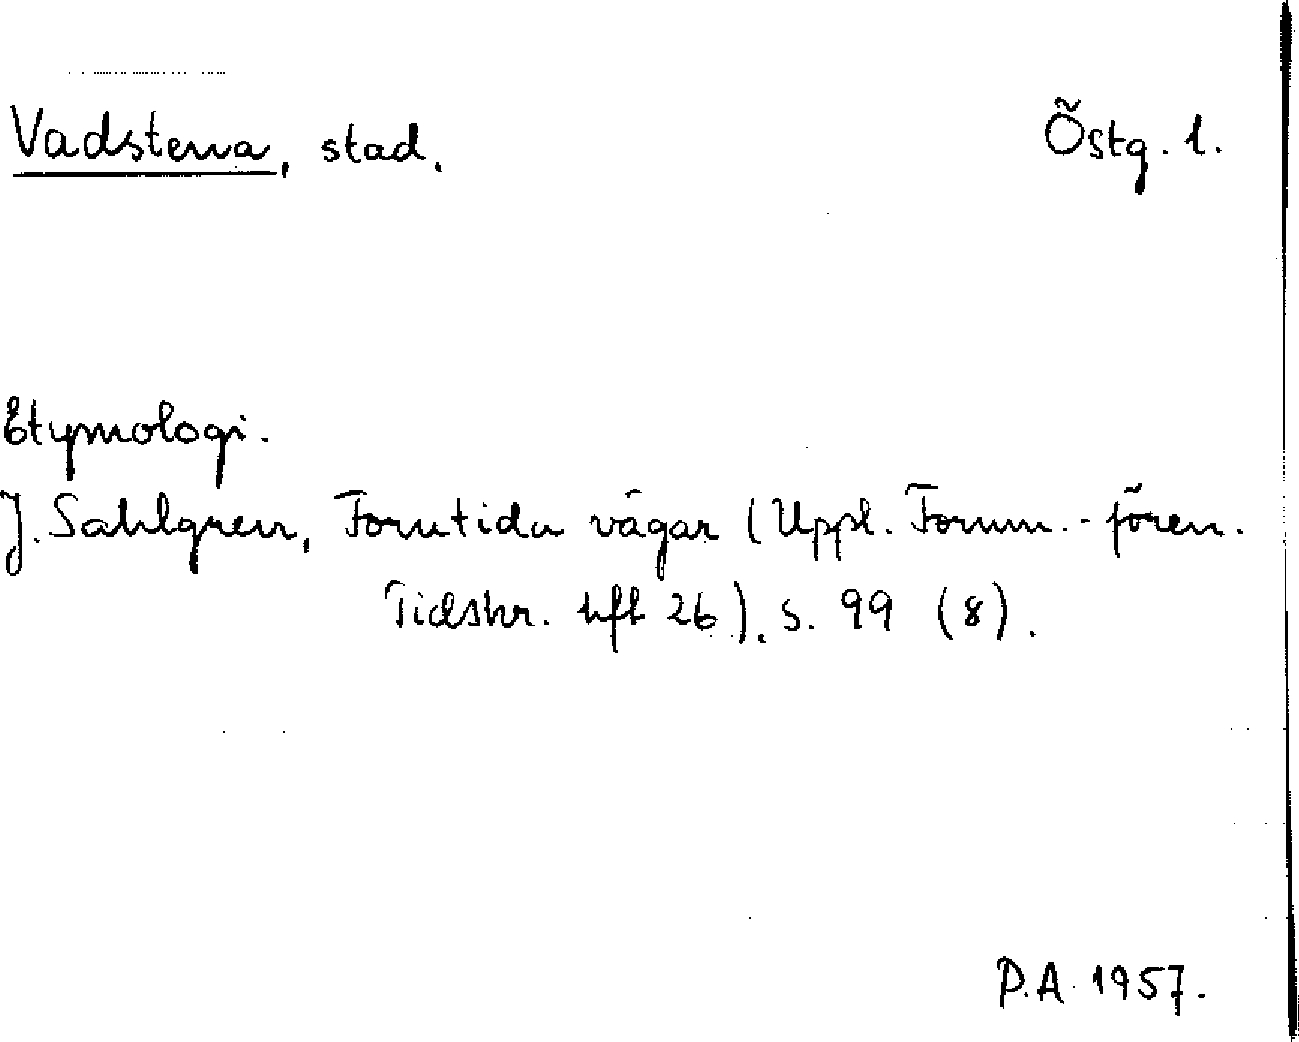 Vadstena, stad. Östg. l.
Etymologi.
J. Sahlgren, Forntida vägar (Uppl. Fornm.-fören.
Tidskr. hft 26), s. 99 (8).
P.A. 1957.